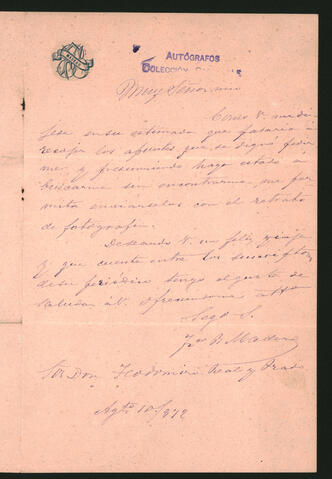 AUTÓGRAFOS
COLECCIÓN
Muy Señor mio
Como V. me di
jese en su estimada que pasaria á
recojer los apuntes que se dignó pedir
me, y presumiendo haya estado á
buscarme sin encontrarme, me per
mito enviarselos con el retrato
de fotografia.
Deseando á V. un feliz viaje
y que cuente entre los suscritos
de su periódico tengo el gusto de
saludar á V. ofreciendome atto
Sego S.
Fco B Madera
Sor Don Teodomiro Leal y Prado
Agto 10/872